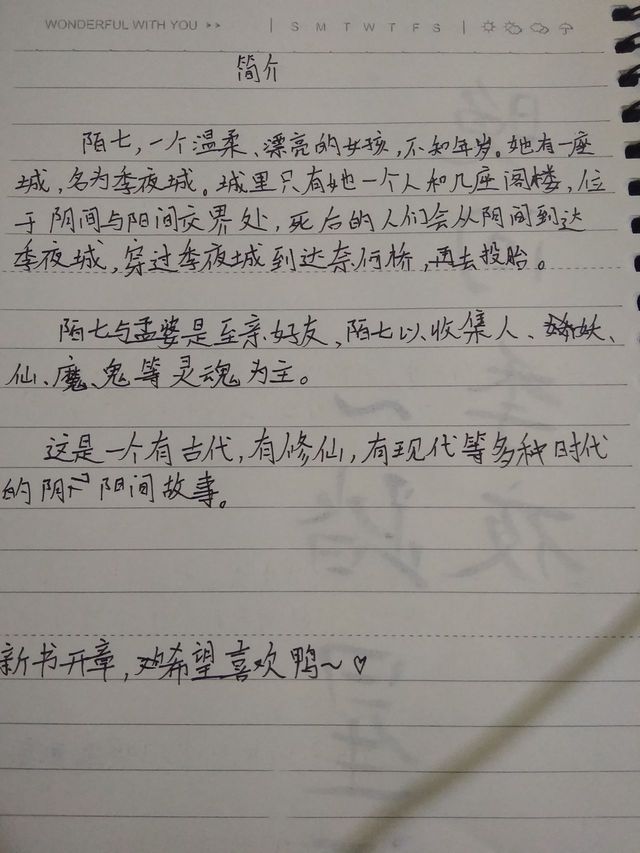 WONDERFUL WITH YOU >>
S M T W T F S
简介
陌七，一个温柔、漂亮的女孩，不知年岁。她有一座
城，名为季夜城。城里只有她一个人和几座阁楼，位
于阴间与阳间交界处，死后的人们会从阴间到达
季夜城，穿过季夜城到达奈何桥，再去投胎。
陌七与孟婆是至亲好友，陌七以收集人、妖、
仙、魔、鬼等灵魂为主。
这是一个有古代，有修仙，有现代等多种时代
的阴阳间故事。
新书开章，希望喜欢鸭~♡